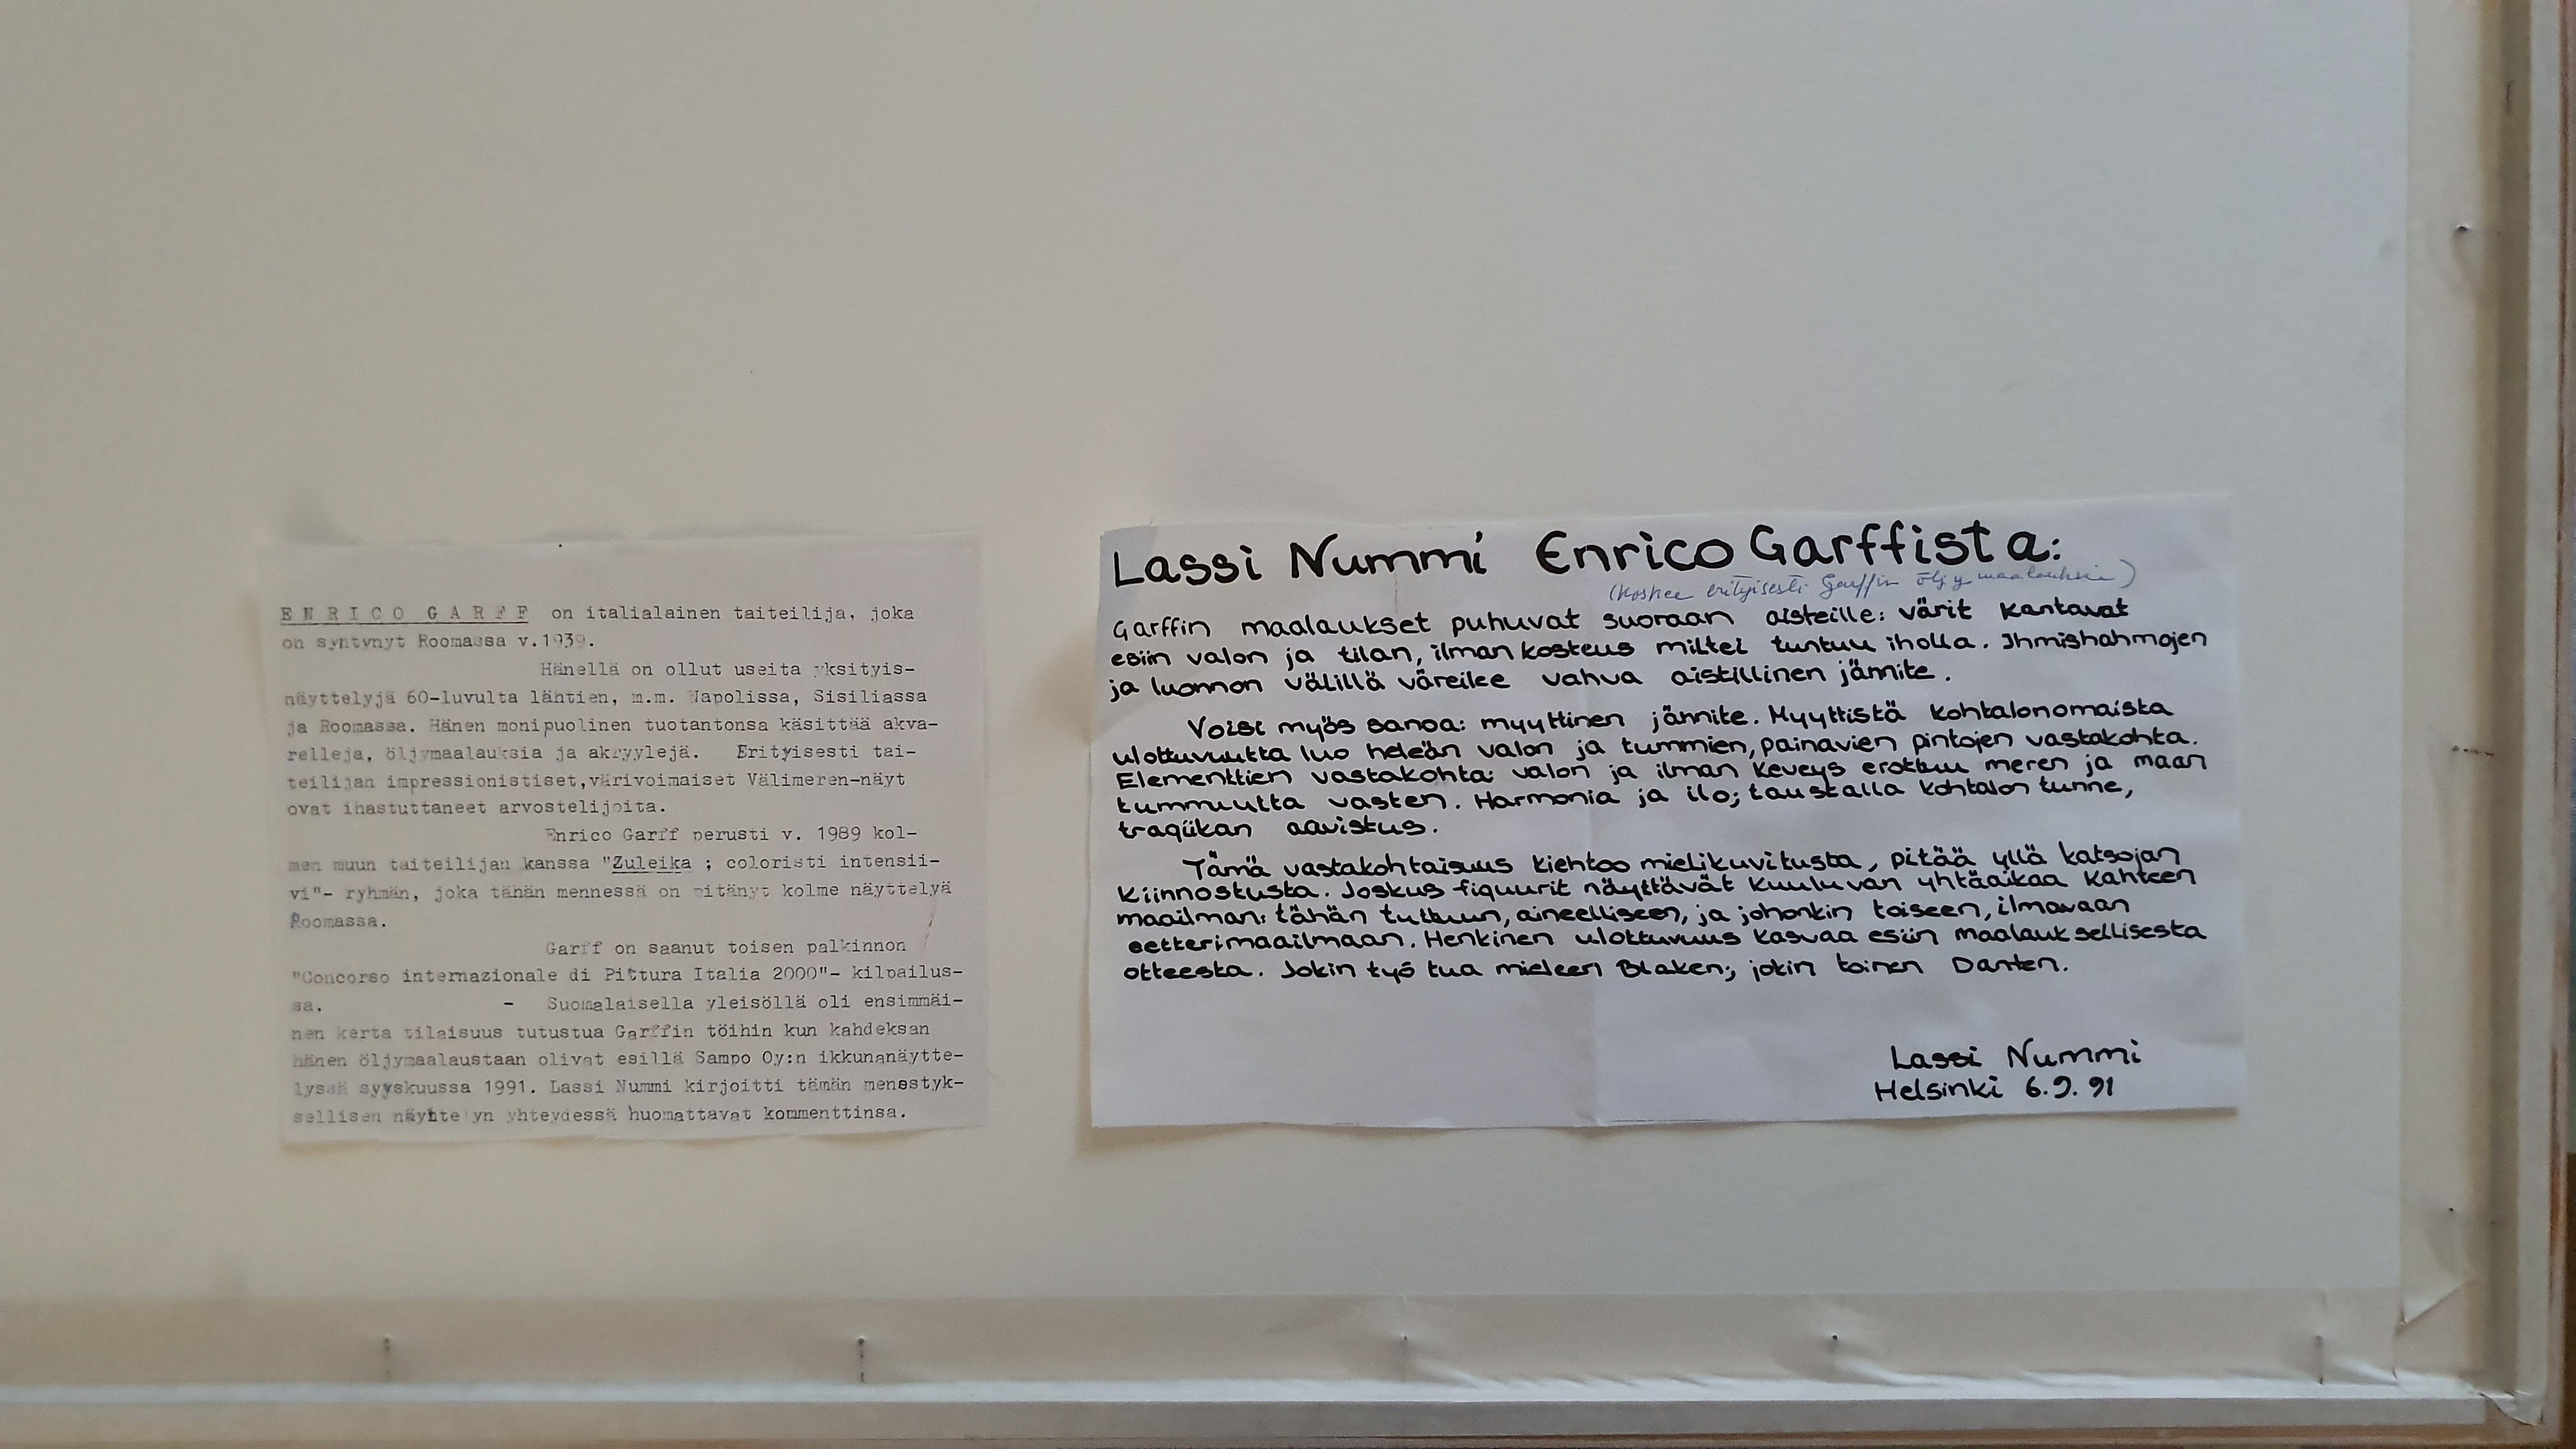 ENRICO GARFF on italialainen taiteilija, joka
on syntynyt Roomassa v.1939.
Hänellä on ollut useita yksityis-
näyttelyjä 60-luvulta lähtien, m.m. Napolissa, Sisiliassa
ja Roomassa. Hänen monipuolinen tuotantonsa käsittää akva-
relleja, öljymaalauksia ja akryylejä. Erityisesti tai-
teilijan impressionistiset,värivoimaiset Välimeren-näyt
ovat ihastuttaneet arvostelijoita.
Enrico Garff perusti v. 1989 kol-
men muun taiteilijan kanssa "Zuleika ; coloristi intensii-
vi"- ryhmän, joka tähän mennessä on pitänyt kolme näyttelyä
Roomassa.
Garff on saanut toisen palkinnon
"Concorso internazionale di Pittura Italia 2000"- kilpailus-
sa. - Suomalaisella yleisöllä oli ensimmäi-
nen kerta tilaisuus tutustua Garffin töihin kun kahdeksan
hänen öljymaalaustaan olivat esillä Sampo Oy:n ikkunanäytte-
lyssä syyskuussa 1991. Lassi Nummi kirjoitti tämän menestyk-
sellisen näyttelyn yhteydessä huomattavat kommenttinsa.
Lassi Nummi Enrico Garffista:
(koskee erityisesti Garffin öljymaalauksia)
Garffin maalaukset puhuvat suoraan aisteille: värit kantavat
esiin valon ja tilan, ilman kosteus miltei tuntuu iholla. Ihmishahmojen
ja luonnon välillä väreilee vahva aistillinen jännite.
Voisi myös sanoa: myyttinen jännite. Myyttistä kohtalonomaista
ulottuvuutta luo heleän valon ja tummien, painavien pintojen vastakohta.
Elementtien vastakohta: valon ja ilman keveys erottuu meren ja maan
tummuutta vasten. Harmonia ja ilo; taustalla kohtalon tunne,
tragiikan aavistus.
Tämä vastakohtaisuus kiehtoo mielikuvitusta, pitää yllä katsojan
kiinnostusta. Joskus figuurit näyttävät kuuluvan yhtäaikaa kahteen
maailman: tähän tuttuun, aineelliseen, ja johonkin toiseen, ilmavaan
eetterimaailmaan. Henkinen ulottuvuus kasvaa esiin maalauksellisesta
otteesta. Jokin työ tua mieleen Blaken; jokin toinen Danten.
Lassi Nummi
Helsinki 6.9.91